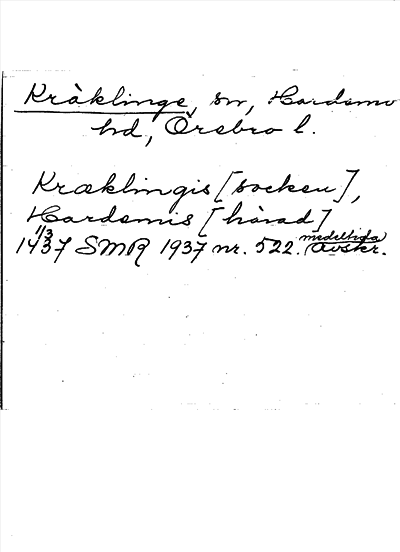 Kråklinge, sn, Hardemo
hd, Örebro l.
Kræklingis [socken],
Hardemis [härad]
1/3
1437 SMR 1937 nr. 522. medeltida
Avskr.